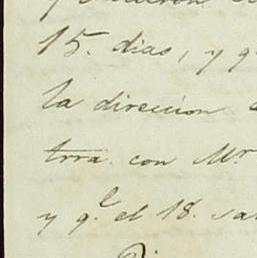 15. dias, y q
la direccion
trra. con Mr.
y q.e el 18. sal